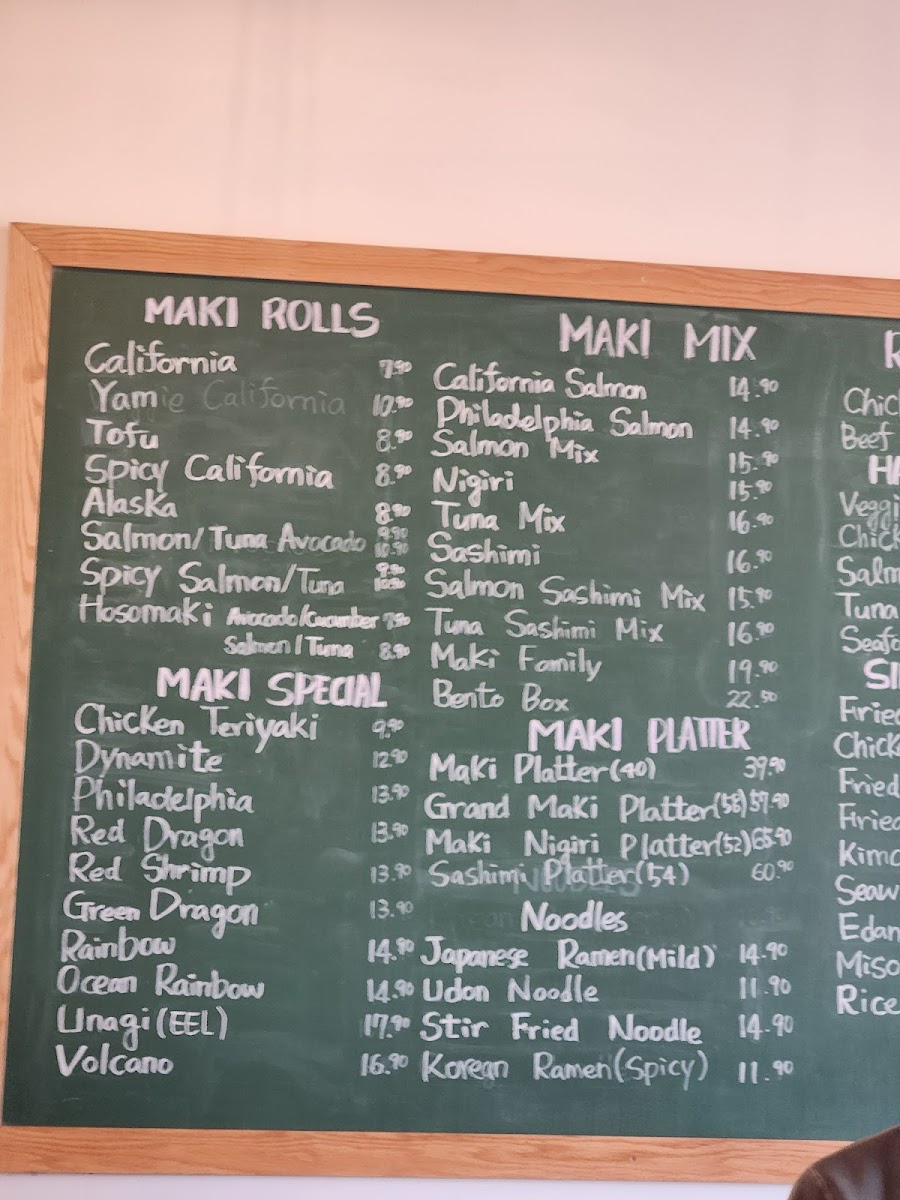 MAKI ROLLS
California 7.90
Yam 10.90
Tofu 8.90
Spicy California 8.90
Alaska 8.90
Salmon/Tuna Avocado 9.90 10.90
Spicy Salmon/Tuna 9.90 10.90
Hosomaki Avocado/Cucumber 7.90
Salmon/Tuna 8.90
MAKI SPECIAL
Chicken Teriyaki 9.90
Dynamite 12.90
Philadelphia 13.90
Red Dragon 13.90
Red Shrimp 13.90
Green Dragon 13.90
Rainbow 14.90
Ocean Rainbow 14.90
Unagi(EEL) 17.90
Volcano 16.90
MAKI MIX
California Salmon 14.90
Philadelphia Salmon 14.90
Salmon Mix 15.90
Nigiri 15.90
Tuna Mix 16.90
Sashimi 16.90
Salmon Sashimi Mix 15.90
Tuna Sashimi Mix 16.90
Maki Family 19.90
Bento Box 22.50
MAKI PLATTER
Maki Platter(40) 39.90
Grand Maki Platter(58) 57.90
Maki Nigiri Platter(52) 65.90
Sashimi Platter(54) 60.90
Noodles
Japanese Ramen(Mild) 14.90
Udon Noodle 11.90
Stir Fried Noodle 14.90
Korean Ramen(Spicy) 11.90
R
Chic
Beef
HA
Veggi
Chick
Salm
Tuna
Seafo
SI
Fried
Chick
Fried
Fried
Kimc
Seaw
Edan
Miso
Rice